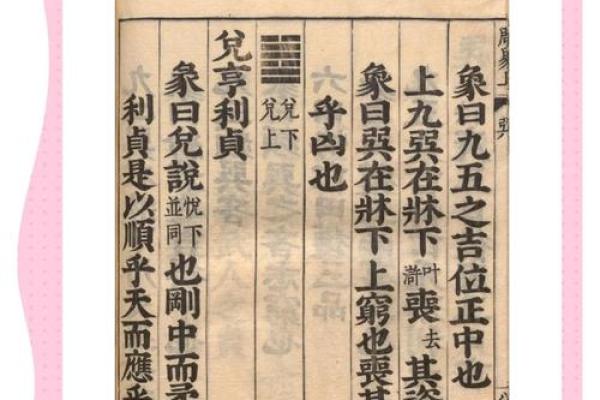 象曰九五之吉位正中也
上九巽在牀下叶滸喪去其資
象曰巽在牀下上窮也喪其
乎凶也
兌下兌上
兌亨利貞
彖曰兌說悅下並同也剛中而柔
利貞是以順乎天而應乎